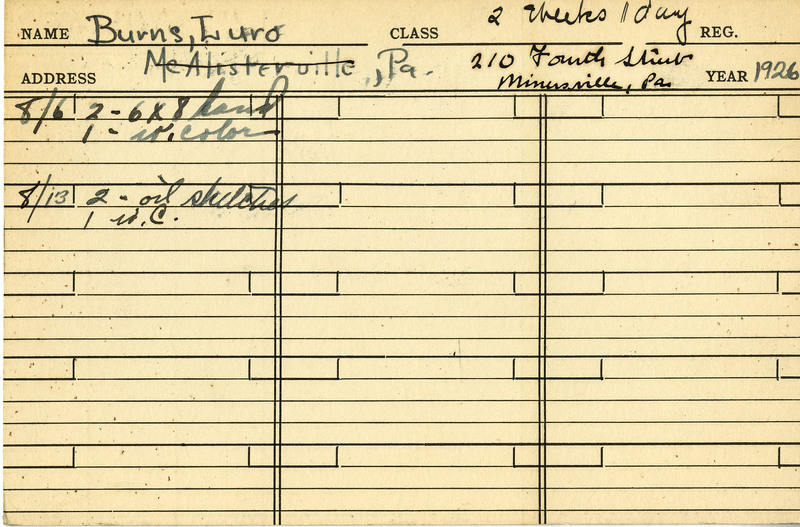 2 Weeks 1 day
NAME Burns, Luro CLASS REG.
McAlisterville, Pa. 210 Fourth Street
ADDRESS Minersville, Pa. YEAR 1926
8/6 2 - 6 x 8
1 - w. color
8/13 2 - oil sketches
1 w.c.